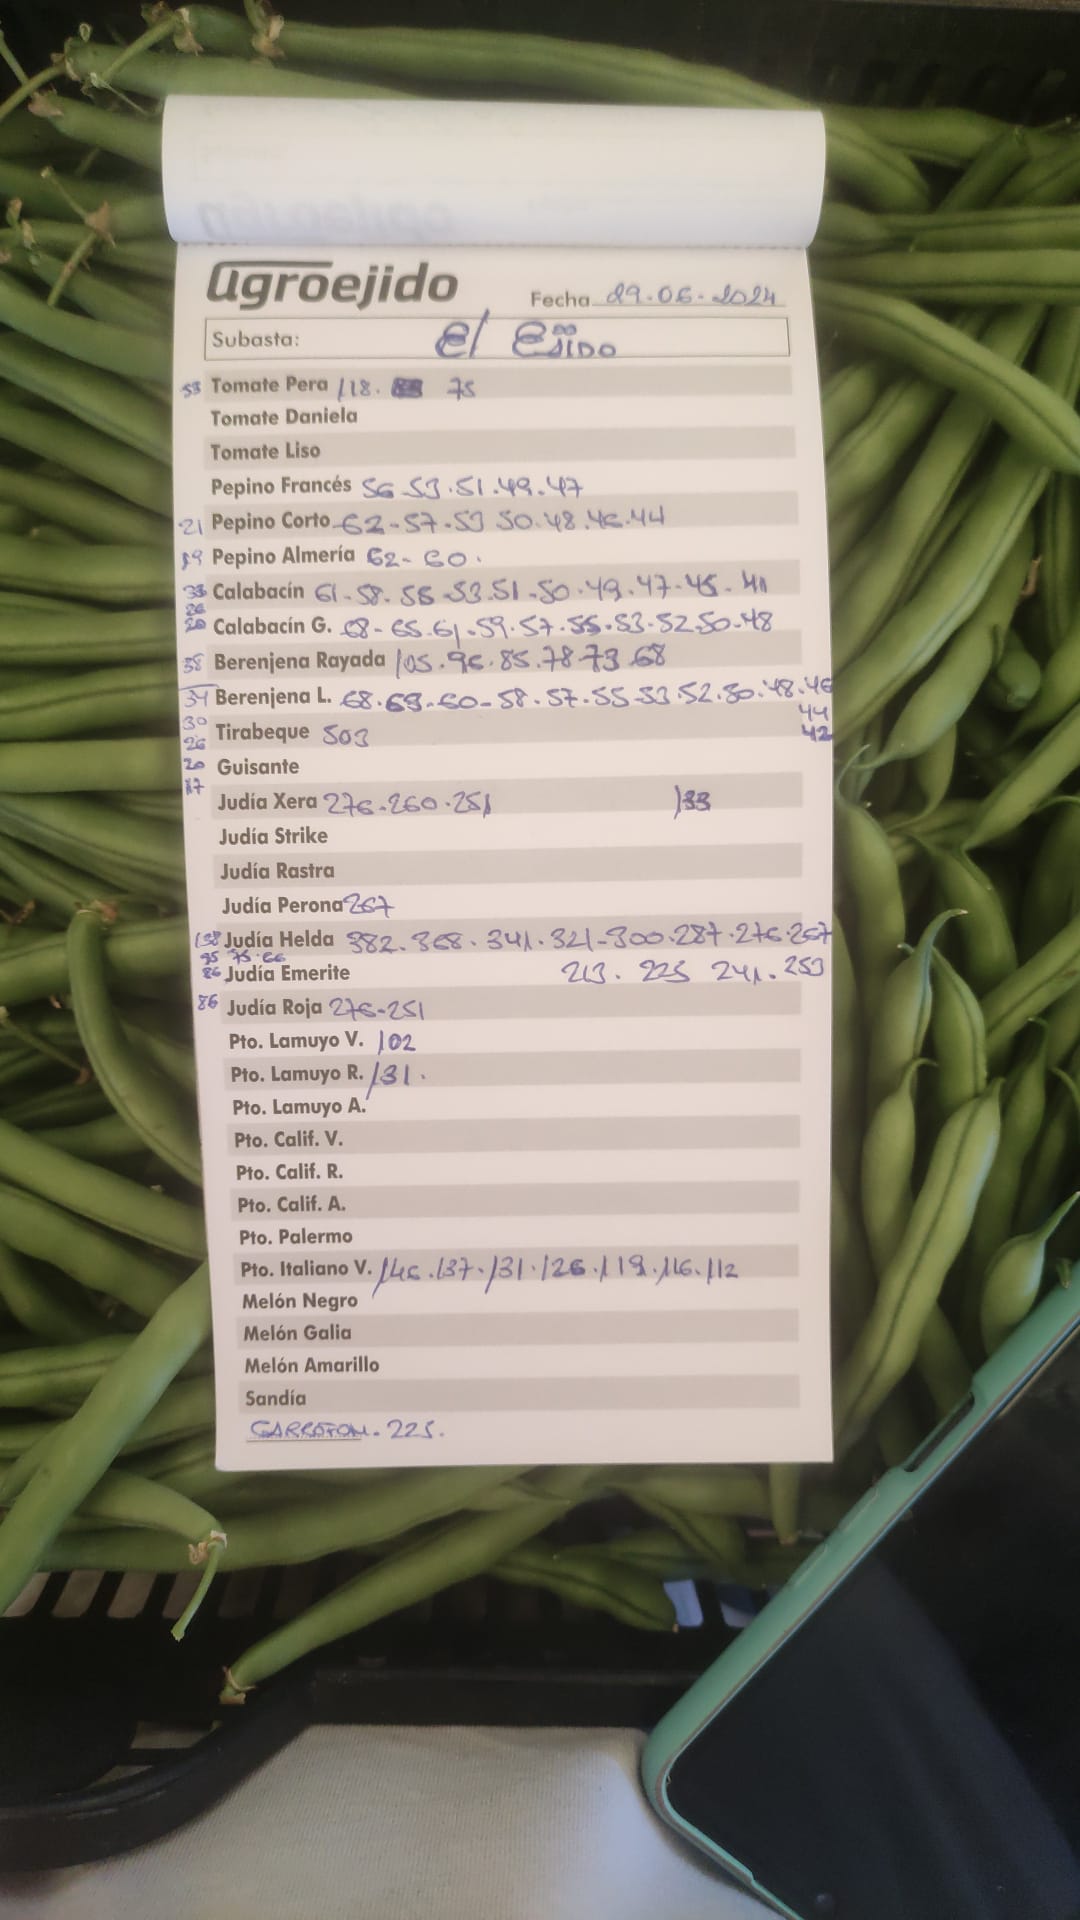 agroejido
Fecha 29.06.2024
Subasta: El Ejido
53 Tomate Pera 118. 75
Tomate Daniela
Tomate Liso
Pepino Francés 56-53.51.49.47
21 Pepino Corto 62-57-53 50.48.46.44
19 Pepino Almería 62-60.
33 Calabacín 61-58.55-53.51-50.49.47-45-41
26
20 Calabacín G. 68-65.61.59.57.55.53.52.50-48
38 Berenjena Rayada 105.96.85.78-73.68
34 Berenjena L. 68.63-60-58.57.55-53.52.50.48.46
44
30
26 Tirabeque 503 42
20 Guisante
17
Judía Xera 276-260-251 133
Judía Strike
Judía Rastra
Judía Perona 267
138 Judía Helda 382.368.341.321-300.287.276.267
95 75.66
86 Judía Emerite 213. 225 241.253
86 Judía Roja 276-251
Pto. Lamuyo V. 102
Pto. Lamuyo R. 131.
Pto. Lamuyo A.
Pto. Calif. V.
Pto. Calif. R.
Pto. Calif. A.
Pto. Palermo
Pto. Italiano V. 146.137.131.126.119.116.112
Melón Negro
Melón Galia
Melón Amarillo
Sandía
GARROFON. 225.